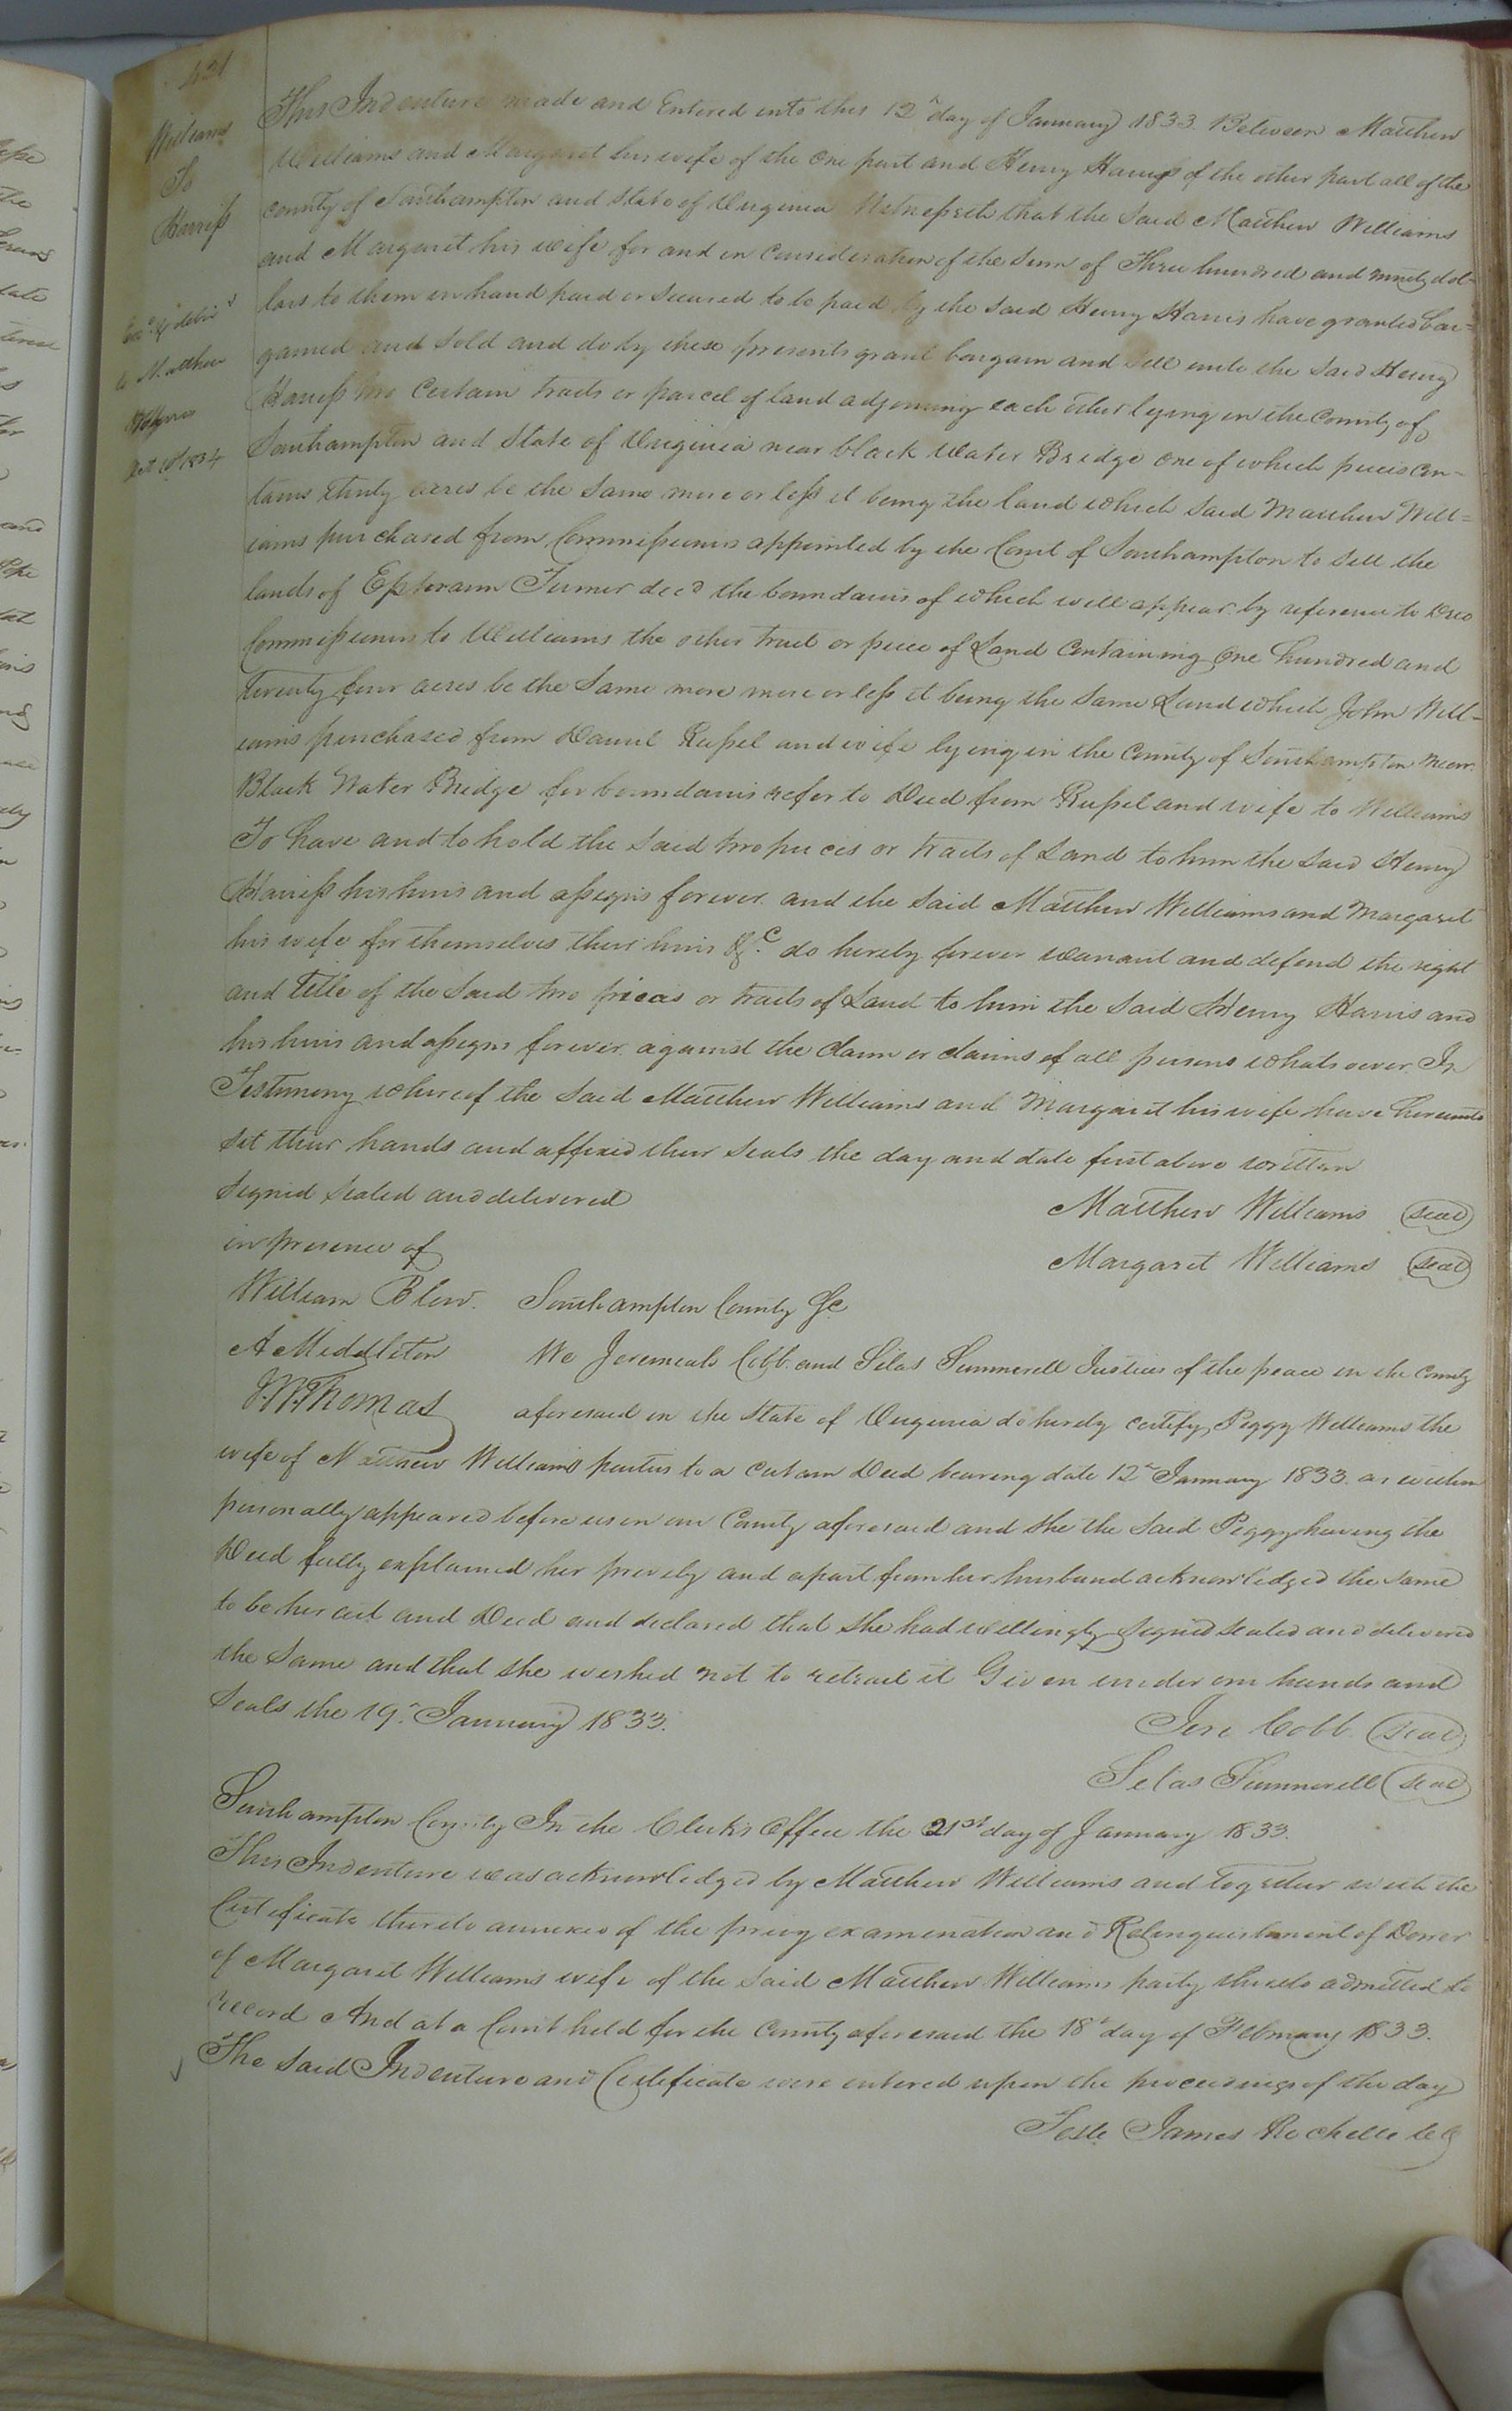 421
Williams
To
Harriss
Exd. & delivd
to Matthew
Octr 1834
This Indenture made and Entered into this 12th day of January 1833. Between Matthew
Williams and Margaret his wife of the one part and Henry Harriss of the other part all of the
county of Southampton and State of Virginia Witnesseth that the Said Matthew Williams
and Margaret his wife for and in consideration of the Sum of Three hundred and ninety dol-
lars to them in hand paid or secured to be paid by the said Henry Harris have granted bar=
gained and Sold and do by these presents grant bargain and sell unto the Said Henry
Harriss two Certain tracts or parcel of land adjoining each other lying in the County of
Southampton and State of Virginia near black Water Bridge one of which pieces con-
tains thirty acres be the Same more or less it being the land which said Matthew Will=
iams purchased from Commissioners appointed by the Court of Southampton to Sell the
lands of Ephraim Turner decd the boundaries of which will appear by reference to Deed
Commissioners to Williams the other tract or piece of Land Containing One hundred and
twenty four acres be the Same more more or less it being the same Land which John Will-
iams purchased from Daniel Russel and wife lying in the County of Southampton near
Black Water Bridge for boundaries refer to Deed from Russel and wife to Williams
To have and to hold the Said two pieces or tracts of Land to him the Said Henry
Harriss his heirs and assigns forever. and the Said Matthew Williams and Margaret
his wife for themselves their heirs &c. do hereby forever warrant and defend the right
and Title of the Said two pieces or tracts of Land to him the Said Henry Harris and
his heirs and assigns forever against the claim or claims of all persons whatsoever In
Testimony whereof the Said Matthew Williams and Margaret his wife have hereunto
Set their hands and affixed their Seals the day and date first above written
Signed Sealed and delivered
Matthew Williams (seal)
in presence of
Margaret Williams (seal)
William Blow.
Southampton County Sc
A Middleton
We Jeremiah Cobb and Silas Summerell Justices of the peace in the County
J.W. Thomas
aforesaid in the State of Virginia do hereby certify Peggy Williams the
wife of Matthew Williams parties to a certain Deed bearing date 12th January 1833. as within
personally appeared before us in our County aforesaid and She the Said Peggy having the
Deed fully explained her privily and apart from her husband acknowledged the same
to be her act and Deed and declared that She had willingly Signed Sealed and delivered
the Same and that She wished not to retract it Given under our hands and
Seals the 19th January 1833.
Jere Cobb (seal)
Silas Summerell (seal)
Southampton County In the Clerk's Office the 21st day of January 1833.
This Indenture was acknowledged by Matthew Williams and together with the
Certificate thereto annexed of the privy examination and Relinquishment of Dower
of Margaret Williams wife of the Said Matthew Williams party thereto admitted to
record And at a Court held for the County aforesaid the 18th day of February 1833.
The Said Indenture and Certificate were entered upon the proceedings of the day
Teste James Rochelle CC